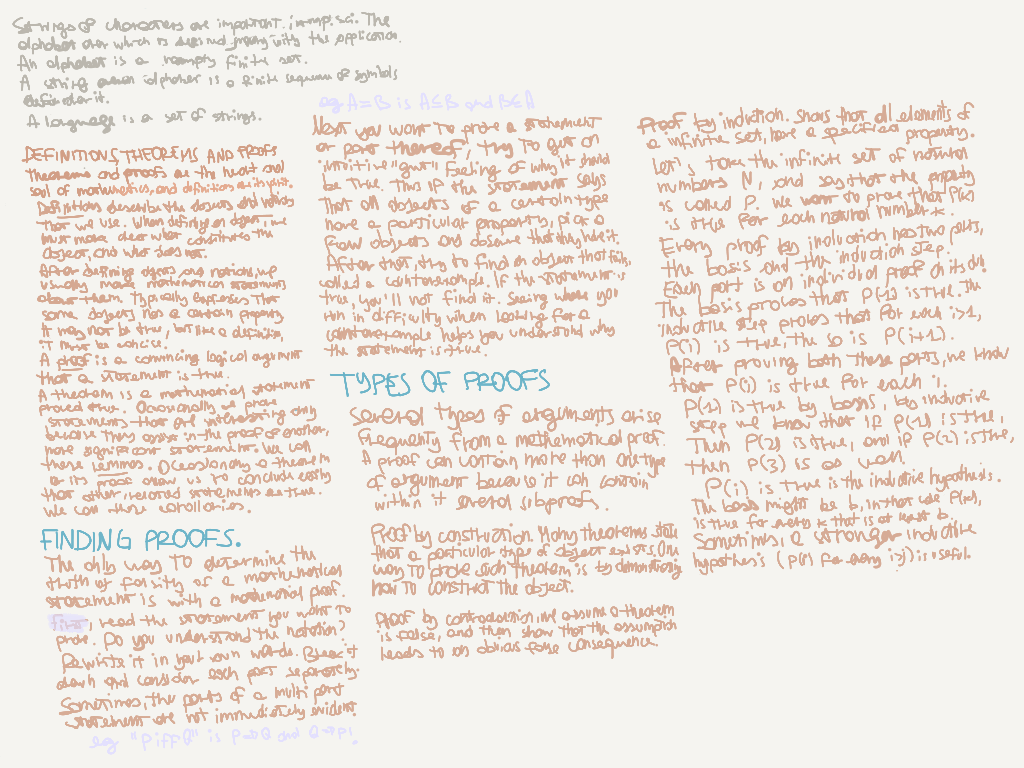 Strings of characters are important in comp. sci. The
alphabet over which is defined varies with the application.
An alphabet is a nonempty finite set.
A string over alphabet is a finite sequence of symbols
defined over it.
A language is a set of strings.
DEFINITIONS, THEOREMS AND PROOFS
Theorems and proofs are the heart and
soul of mathematics, and definitions are its spirit.
Definitions describe the objects and notions
that we use. When defining an object, we
must make clear what constitutes the
object, and what does not.
After defining objects and notions, we
usually make mathematical statements
about them. Typically expresses that
some objects has a certain property.
It may not be true, but like a definition,
it must be concise.
A proof is a convincing logical argument
that a statement is true.
A theorem is a mathematical statement
proved true. Occasionally we prove
statements that are interesting only
because they assist in the proof of another,
more significant statement. We call
those lemmas. Occasionally a theorem
or its proof allow us to conclude easily
that other related statements are true.
We call those corollaries.
FINDING PROOFS.
The only way to determine the
truth or falsity of a mathematical
statement is with a mathematical proof.
First, read the statement you want to
prove. Do you understand the notation?
Rewrite it in your own words. Break it
down and consider each part separately.
Sometimes, the parts of a multi part
statement are not immediately evident.
eg "P iff Q" is P→Q and Q→P.
eg A=B is A⊆B and B⊆A
Next you want to prove a statement
or part thereof, try to get an
intuitive "gut" feeling of why it should
be true. This if the statement says
that all objects of a certain type
have a particular property, pick a
few objects and observe that they have it.
After that, try to find an object that fails,
called a counterexample. If the statement is
true, you'll not find it. Seeing where you
run in difficulty when looking for a
counterexample helps you understand why
the statement is true.
TYPES OF PROOFS
Several types of arguments arise
frequently from a mathematical proof.
A proof can contain more than one type
of argument because it can contain
within it several subproofs.
Proof by construction. Many theorems state
that a particular type of object exists. One
way to prove such theorem is by demonstrating
how to construct the object.
Proof by contradiction, we assume a theorem
is false, and then show that the assumption
leads to an obvious false consequence.
Proof by induction. Shows that all elements of
a infinite set, have a specified property.
Let's take the infinite set of natural
numbers N, and say that the property
is called P. We want to prove that P(k)
is true for each natural number k.
Every proof by induction has two parts,
the basis and the induction step.
Each part is an individual proof on its own.
The basis proves that P(1) is true. The
inductive step proves that for each i≥1,
P(i) is true, the so is P(i+1).
After proving both these parts, we know
that P(i) is true for each i.
P(1) is true by basis, by inductive
step we know that if P(1) is true,
Then P(2) is true, and if P(2) is true,
then P(3) is as well.
P(i) is true is the inductive hypothesis.
The basis might be b, in that case P(k),
is true for every k that is at least b.
Sometimes, a stronger inductive
hypothesis (P(j) for every i≥j) is useful.